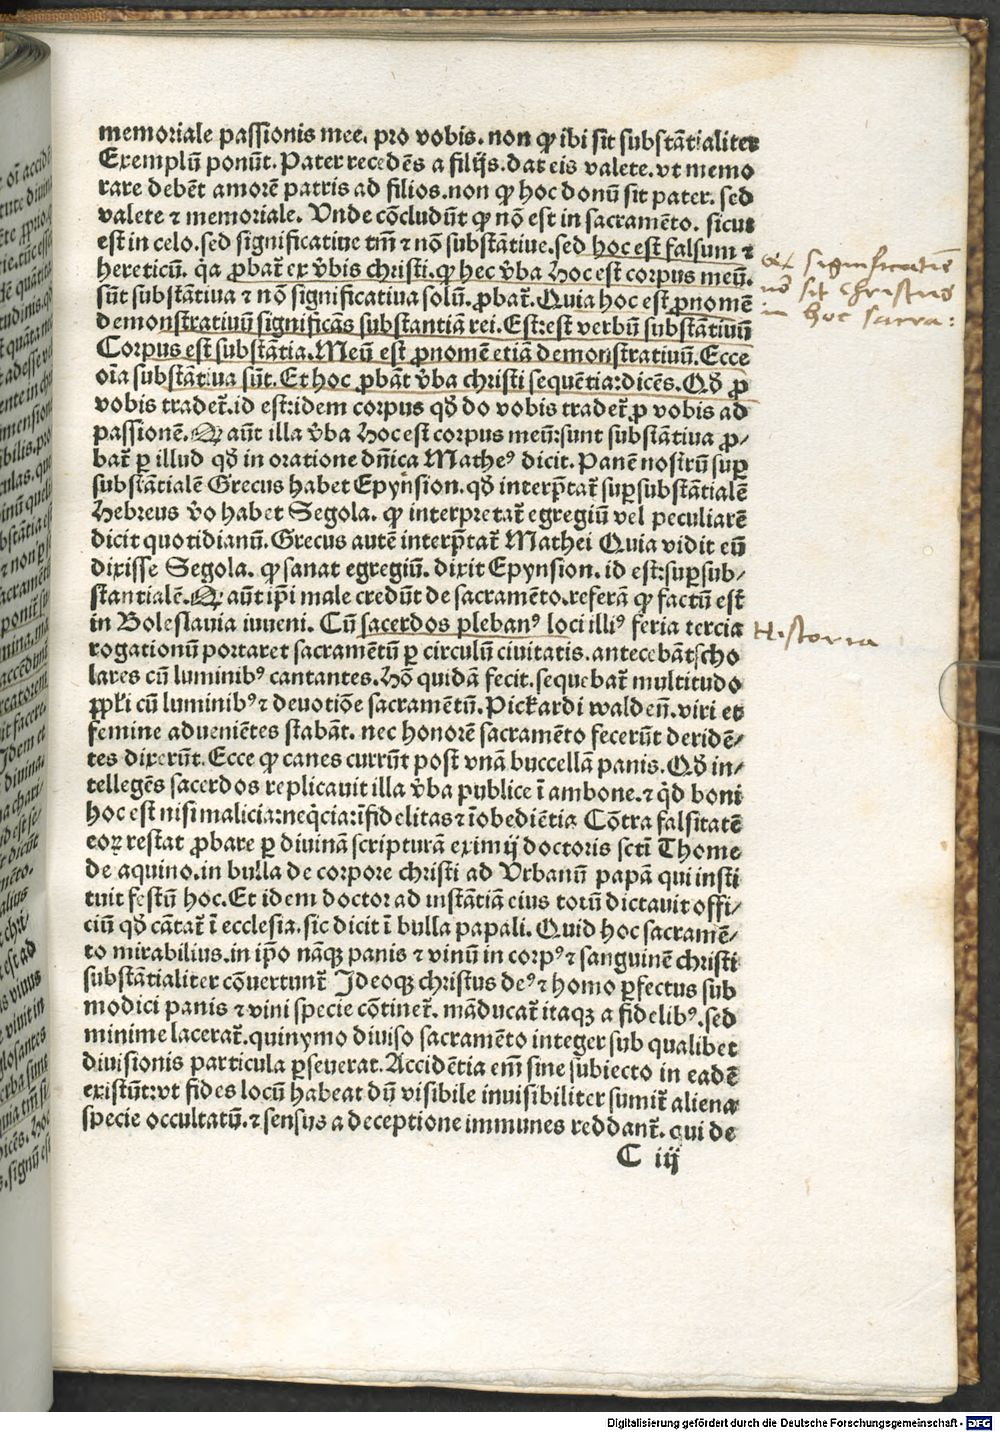 memoriale passionis mee. pro vobis. non ꝙ ibi sit substãtialiter
Exemplũ ponũt. Pater recedẽs a filijs. dat eis valete. vt memo
rare debẽt amorẽ patris ad filios. non ꝙ hoc donũ sit pater. sed
valete ⁊ memoriale. Unde cõcludũt ꝙ nõ est in sacramẽto. sicut
est in celo. sed significatiue tm̃ ⁊ nõ substãtiue. sed hoc est falsum ⁊
hereticũ. q̃a ꝓbat̃ ex v̾bis christi. ꝙ hec v̾ba Hoc est corpus meũ.
sũt substãtiua ⁊ nõ significatiua solũ. ꝓbat̃. Quia hoc est ꝓnomẽ
demonstratiuũ significãs substantiã rei. Est: est verbũ substãtiuũ
Corpus est substãtia. Meũ est ꝓnomẽ etiã demonstratiuũ. Ecce
oĩa substãtiua sũt. Et hoc ꝓbãt v̾ba christi sequẽtia: dicẽs. Qđ ꝓ
vobis tradet̃. id est: idem corpus qđ do vobis tradet̃ ꝓ vobis ad
passionẽ. Ꝙ aũt illa v̾ba Hoc est corpus meũ: sunt substãtiua ꝓ/
bat̃ ꝑ illud qđ in oratione dñica Matheꝰ dicit. Panẽ nostrũ suꝑ
substãtialẽ Grecus habet Epynsion. qđ interp̃tat̃ suꝑsubstãtialẽ
Hebreus v̾o habet Segola. ꝙ interpretat̃ egregiũ vel peculiarẽ
dicit quotidianũ. Grecus autẽ interp̃tat̃ Mathei Quia vidit eũ
dixisse Segola. ꝙ sanat egregiũ. dixit Epynsion. id est: suꝑsub/
stantialẽ. Ꝙ aũt ip̃i male credũt de sacramẽto. referã ꝙ factũ est
in Boleslauia iuueni. Cũ sacerdos plebanꝰ loci illiꝰ feria tercia
rogationũ portaret sacramẽtũ ꝑ circulũ ciuitatis. antecebãt scho
lares cũ luminibꝰ cantantes. Hõ quidã fecit. sequebat̃ multitudo
ꝓpĺi cũ luminibꝰ ⁊ deuotiõe sacramẽtũ. Pickardi walden̄. viri et
femine adueniẽtes stabãt. nec honorẽ sacramẽto fecerũt deridẽ/
tes dixerũt. Ecce ꝙ canes currũt post vnã buccellã panis. Qđ in/
tellegẽs sacerdos replicauit illa v̾ba publice ĩ ambone. ⁊ q̇d boni
hoc est nisi malicia: neq̇cia: ĩfidelitas ⁊ ĩobediẽtia Cõtra falsitatẽ
eoꝝ restat ꝓbare ꝑ diuinã scripturã eximij doctoris scti̇ Thome
de aquino. in bulla de corpore christi ad Urbanũ papã qui insti
tuit festũ hoc. Et idem doctor ad instãtiã eius totũ dictauit offi/
ciũ qđ cãtat̃ ĩ ecclesia. sic dicit ĩ bulla papali. Quid hoc sacramẽ/
to mirabilius. in ip̃o nãqꝫ panis ⁊ vinũ in corpꝰ ⁊ sanguinẽ christi
substãtialiter cõuertunt̃ Ideoqꝫ christus deꝰ ⁊ homo ꝑfectus sub
modici panis ⁊ vini specie cõtinet̃. mãducat̃ itaqꝫ a fidelibꝰ. sed
minime lacerat̃. quinymo diuiso sacramẽto integer sub qualibet
diuisionis particula ꝑseuerat. Accidẽtia em̃ sine subiecto in eadẽ
existũt: vt fides locũ habeat dũ visibile inuisibiliter sumit̃ aliena
specie occultatũ. ⁊ sensus a deceptione immunes reddant̃. qui de
C iij
significatiẽ
sit christus
in hoc sacra:
Historia
Digitalisierung gefördert durch die Deutsche Forschungsgemeinschaft - DFG